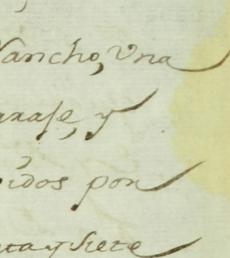 Sancho, Una
araje, y
idos por
nta y siete